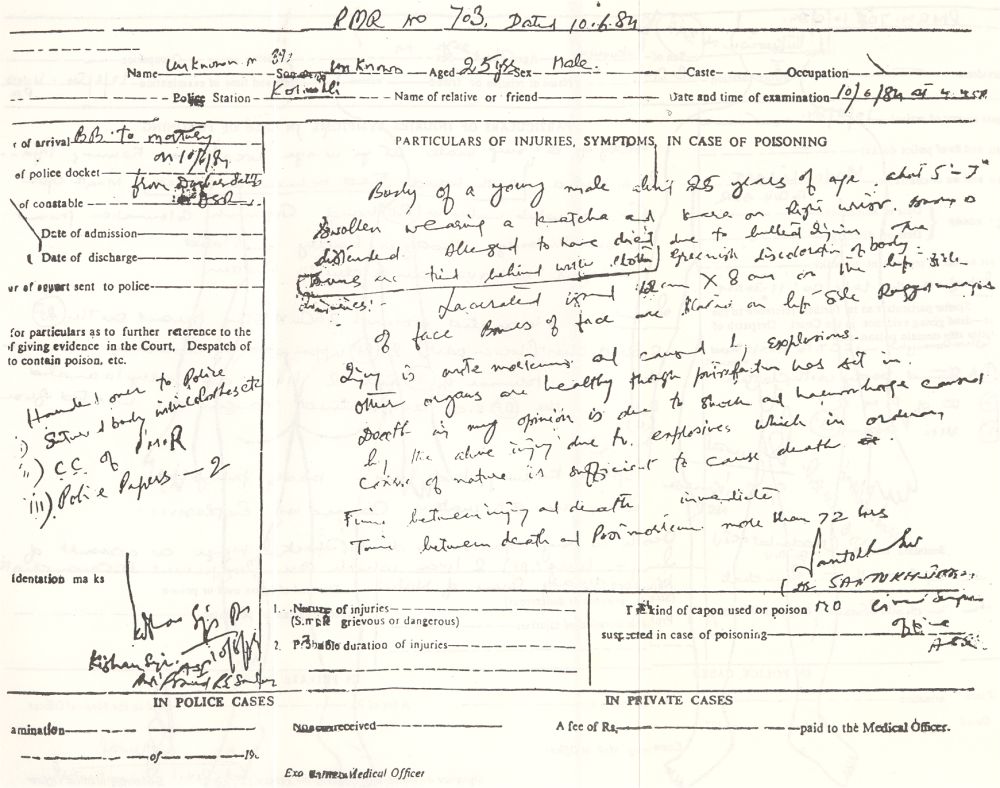 PMR no 703. Dated 10.6.84
Name Unknown Son Unknown Aged 25 yrs Sex Male. Caste Occupation
Police Station Kotwali Name of relative or friend Date and time of examination 10/6/84 at
of arrival BB to mortuary
on 10/6/84
of police docket from Darbar Sahib
of constable DSP
Date of admission
Date of discharge
sent to police
for particulars as to further reference to the
of giving evidence in the Court, Despatch of
to contain poison, etc.
Handed over to Police
i) Sutured body with clothes etc
ii) C.C. of PMR
iii) Police Papers — 2
PARTICULARS OF INJURIES, SYMPTOMS, IN CASE OF POISONING
Body of a young male about 25 years of age. about 5'-7"
Swollen wearing a Katcha and Kara on Right wrist.
distended. Alleged to have died due to bullet injuries. The
Arms are tied behind with cloth Greenish discolouration of body.
Injuries:- Lacerated wound 12 cm X 8 cm on the left side
of face Bones of face are on left side Ragged margins
Injury is ante mortem and caused by explosions.
Other organs are healthy though putrefaction has set in.
Death in my opinion is due to shock and haemorrhage caused
by the above injury due to explosives which in ordinary
course of nature is sufficient to cause death.
Time between injury and death immediate
Time between death and Post mortem more than 72 hrs
Identation ma ks
Kishan
1. Nature of injuries
grievous or dangerous)
2. duration of injuries
kind of capon used or poison
suspected in case of poisoning
IN POLICE CASES
IN PRIVATE CASES
amination
received
A fee of Rs. paid to the Medical Officer.
of 19
Medical Officer